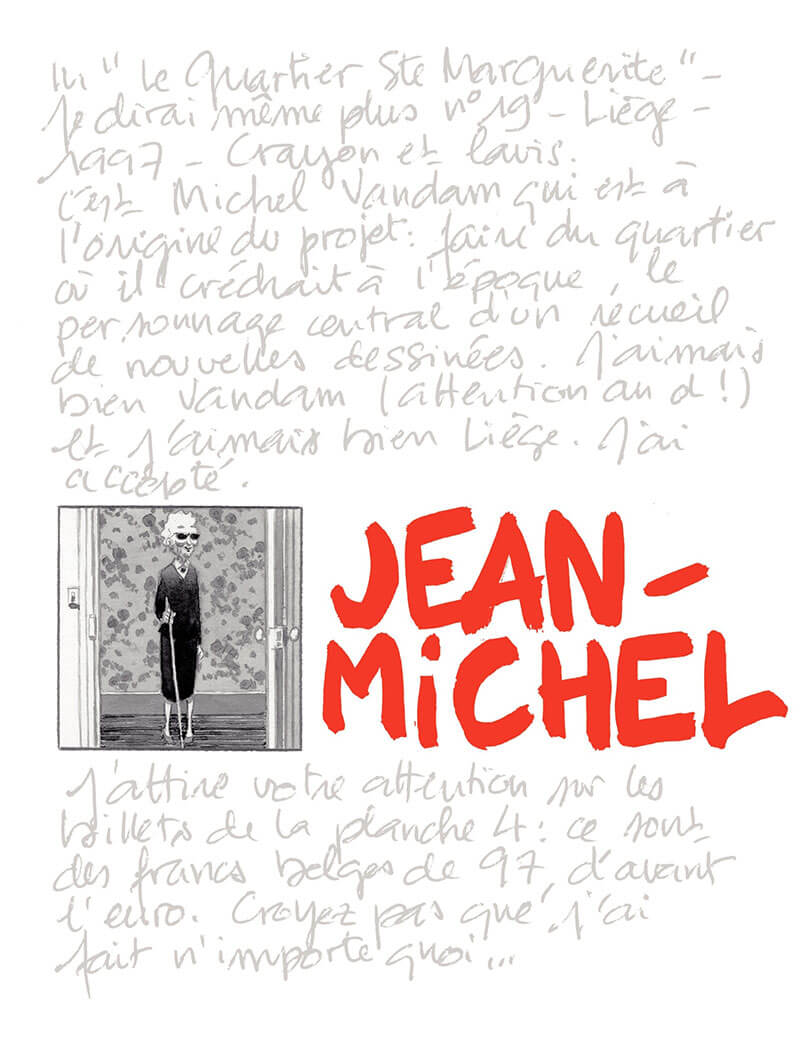 In "Le Quartier Ste Marguerite" -
Je dirai même plus n°19 - Liège -
1997 - Crayon et lavis.
C'est Michel Vandam qui est à
l'origine du projet : faire du quartier
où il créchait à l'époque, le
personnage central d'un recueil
de nouvelles dessinées. J'aimais
bien Vandam (attention au d !)
et j'aimais bien Liège. J'ai
accepté.
JEAN-
MiCHEL
J'attire votre attention sur les
billets de la planche 4 : ce sont
des francs belges de 97, d'avant
l'euro. Croyez pas que j'ai
fait n'importe quoi...